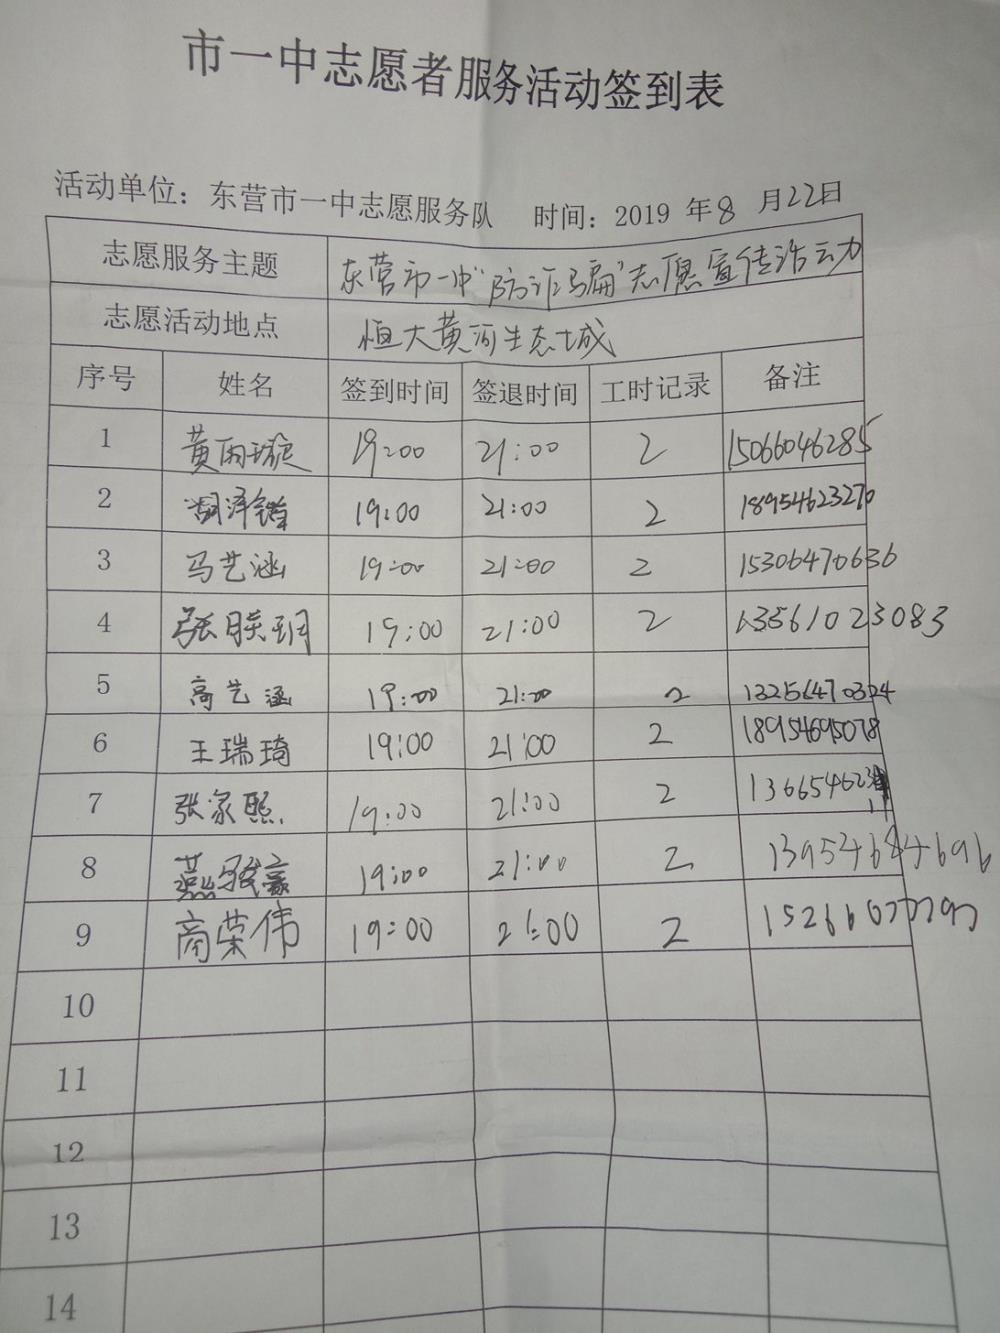 市一中志愿者服务活动签到表
活动单位：东营市一中志愿服务队 时间：2019 年 8 月 22日
志愿服务主题 东营市一中“防诈骗”志愿宣传活动
志愿活动地点 恒大黄河生态城
序号 姓名 签到时间 签退时间 工时记录 备注
1 黄雨璇 19:00 21:00 2 15066046285
2 19:00 21:00 2 18954623270
3 马艺涵 19:00 21:00 2 15306470636
4 张 19:00 21:00 2 13561023083
5 高艺涵 19:00 21:00 2 13256470324
6 王瑞琦 19:00 21:00 2 18954695078
7 张家熙 19:00 21:00 2
8 燕骏豪 19:00 21:00 2 13954684696
9 商荣伟 19:00 21:00 2
10
11
12
13
14